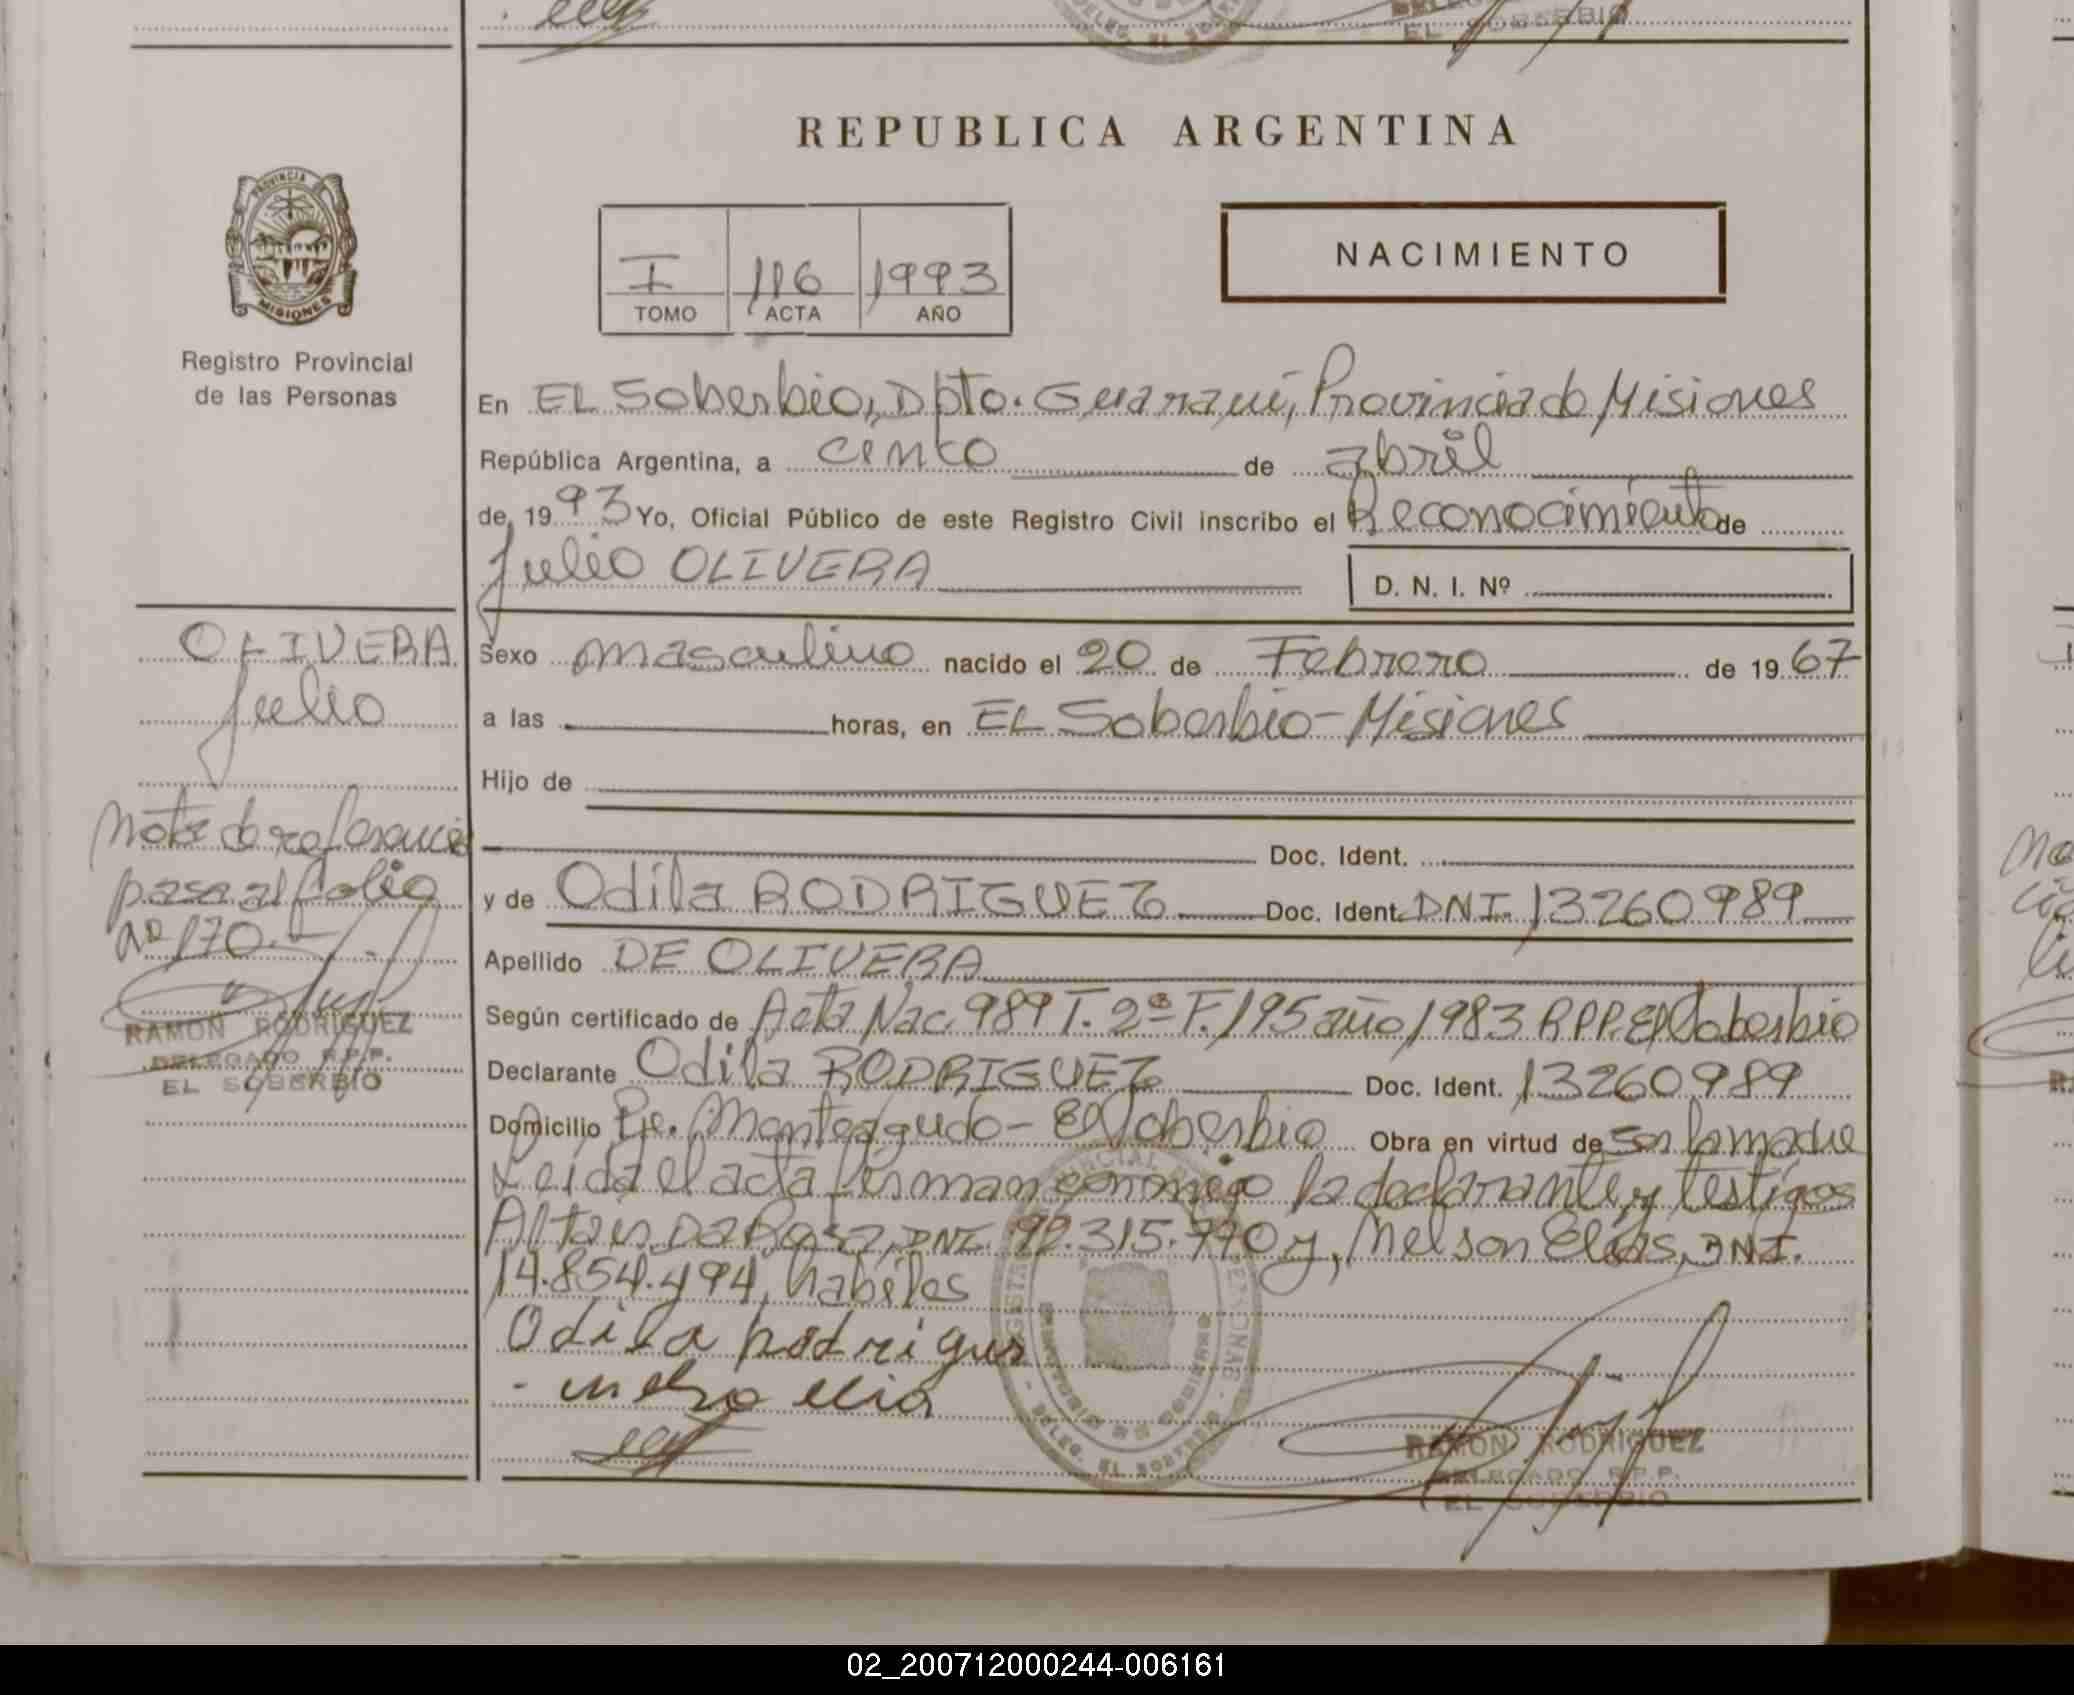 REPUBLICA ARGENTINA
PROVINCIA DE
MISIONES
Registro Provincial
de las Personas
I 116 1993
TOMO ACTA AÑO
NACIMIENTO
En EL Soberbio, Dpto. Guaraní, Provincia de Misiones
República Argentina, a cinco de abril
de 1993 Yo, Oficial Público de este Registro Civil inscribo el Reconocimiento de
Julio OLIVERA
D. N. I. Nº
OLIVERA
Julio
Nota de referencia
pasa al folio
nº 170.-
RAMON RODRIGUEZ
DELEGADO R.P.P.
EL SOBERBIO
Sexo masculino nacido el 20 de Febrero de 1967
a las horas, en EL Soberbio - Misiones
Hijo de
Doc. Ident.
y de Odila RODRIGUEZ Doc. Ident. DNI. 13260989
Apellido DE OLIVERA
Según certificado de Acta Nac. 989 T. 2º F. 195 año 1983 R.P.P. El Soberbio
Declarante Odila RODRIGUEZ Doc. Ident. 13260989
Domicilio Pje. Monteagudo - El Soberbio Obra en virtud de ser la madre
Leida el acta firman conmigo la declarante y testigos
Altair Da Rosa, DNI. 92.315.770 y, Nelson Elias, DNI.
14.854.494, habiles
Odila Rodrigues
RAMON RODRIGUEZ
DELEGADO R.P.P.
EL SOBERBIO
02_200712000244-006161